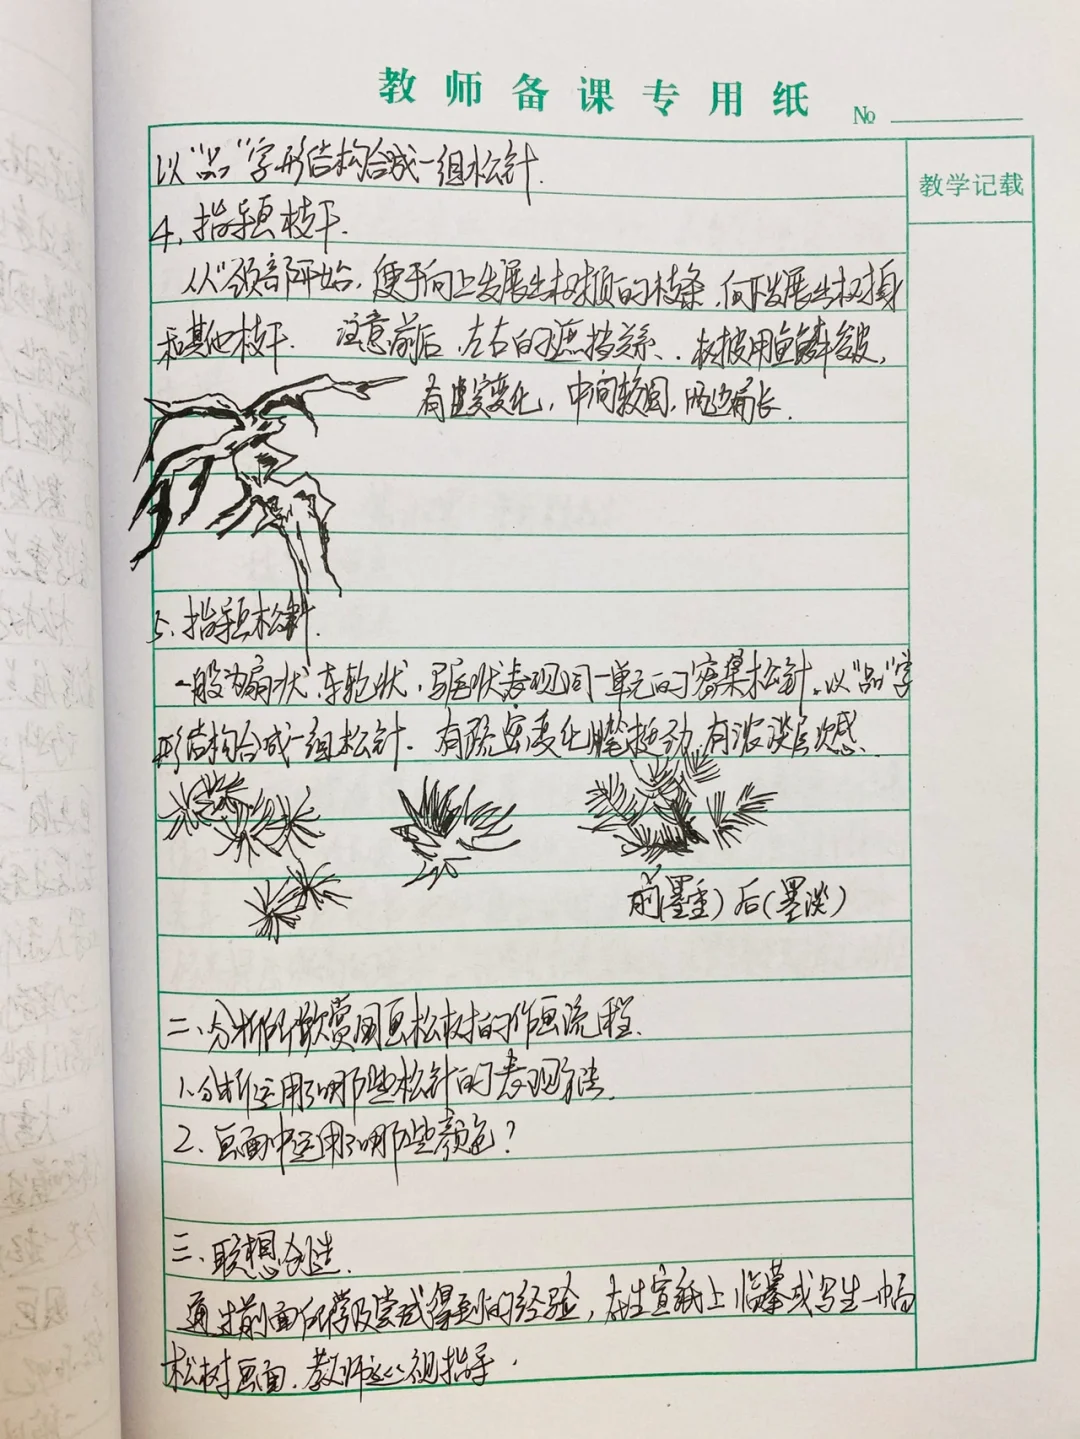 教师备课专用纸
№
教学记载
以“品”字形结构合成一组松针.
4、指导画枝干.
从“颈部”开始,便于向上发展出树顶的枝条,向下发展出树身
和其他枝干. 注意前后、左右的遮挡关系、树皮用鱼鳞皴,
有虚实变化,中间较圆,两边扁长.
5、指导画松针.
一般为扇状、车轮状、马尾状表现同一单元的密集松针。以“品”字
形结构合成一组松针. 有疏密变化 挺劲 有浓淡层次感.
前(墨重) 后(墨淡)
二、分析所欣赏国画松树的作画流程.
1、分析运用了哪些松针的表现方法.
2、画面中运用了哪些颜色?
三、联想创造.
通过前面所学及尝试得到的经验,在生宣纸上临摹或写生一幅
松树画面.教师巡视指导.